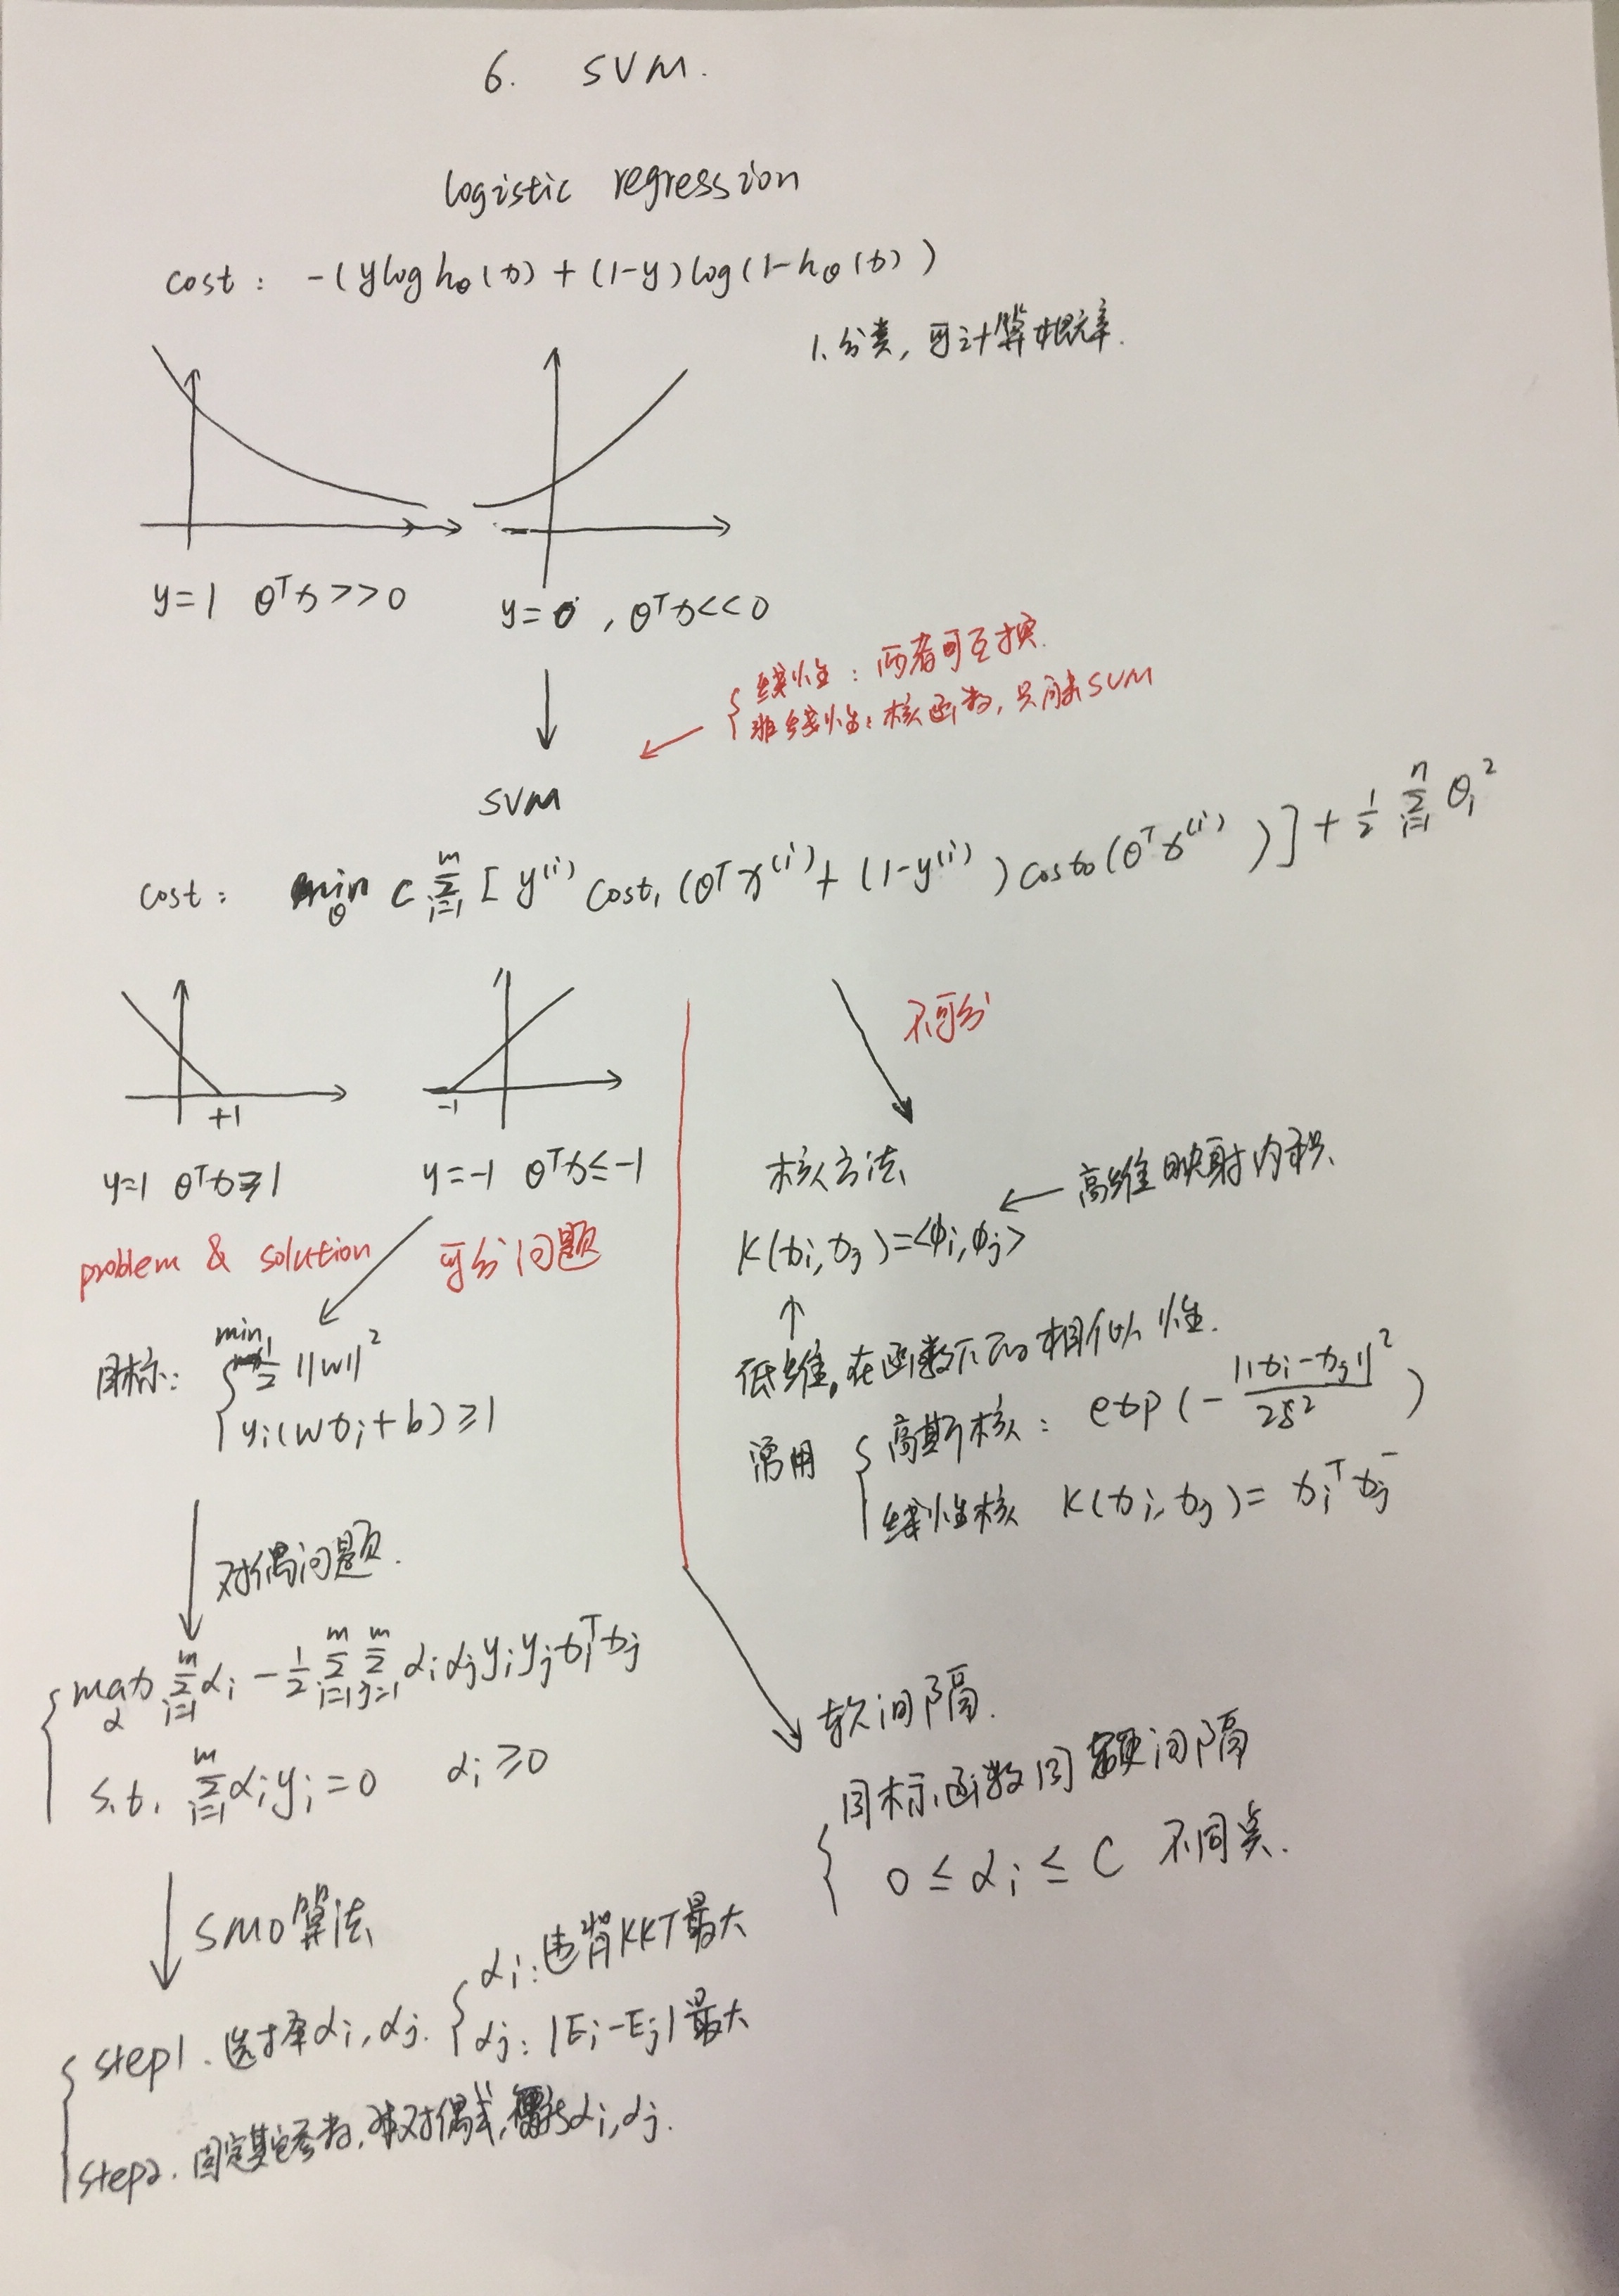 6. SVM.
logistic regression
cost: -(ylog hθ(x) + (1-y)log(1-hθ(x))
1、分类，可计算概率.
y=1 θᵀx>>0
y=0 , θᵀx<<0
线性：两者可互换.
非线性：核函数，只用于SVM
SVM
cost: min_θ C Σ_{i=1}^{m} [ y⁽ⁱ⁾ cost₁ (θᵀx⁽ⁱ⁾ + (1-y⁽ⁱ⁾) cost₀ (θᵀx⁽ⁱ⁾)] + 1/2 Σ_{i=1}^{n} θᵢ²
不可分
+1
-1
y=1 θᵀx≥1
y=-1 θᵀx≤-1
problem & solution
可分问题
目标: min 1/2 ||w||²
yᵢ(wxᵢ+b)≥1
对偶问题.
max_α Σ_{i=1}^{m} αᵢ - 1/2 Σ_{i=1}^{m} Σ_{j=1}^{m} αᵢαⱼyᵢyⱼxᵢᵀxⱼ
s.t. Σ_{i=1}^{m} αᵢyᵢ=0 αᵢ≥0
SMO算法
step1. 选择αᵢ, αⱼ.
αᵢ: 违背KKT最大
αⱼ: |Eᵢ-Eⱼ|最大
step2. 固定其它参数, 对偶式, αᵢ, αⱼ.
核方法
K(xᵢ,xⱼ)=<ϕᵢ,ϕⱼ>
高维映射内积
低维,在函数下的相似性.
常用
高斯核: exp(-||xᵢ-xⱼ||²/2δ²)
线性核 K(xᵢ,xⱼ)= xᵢᵀxⱼ
软间隔.
目标函数同硬间隔
0≤αᵢ≤C 不同点.